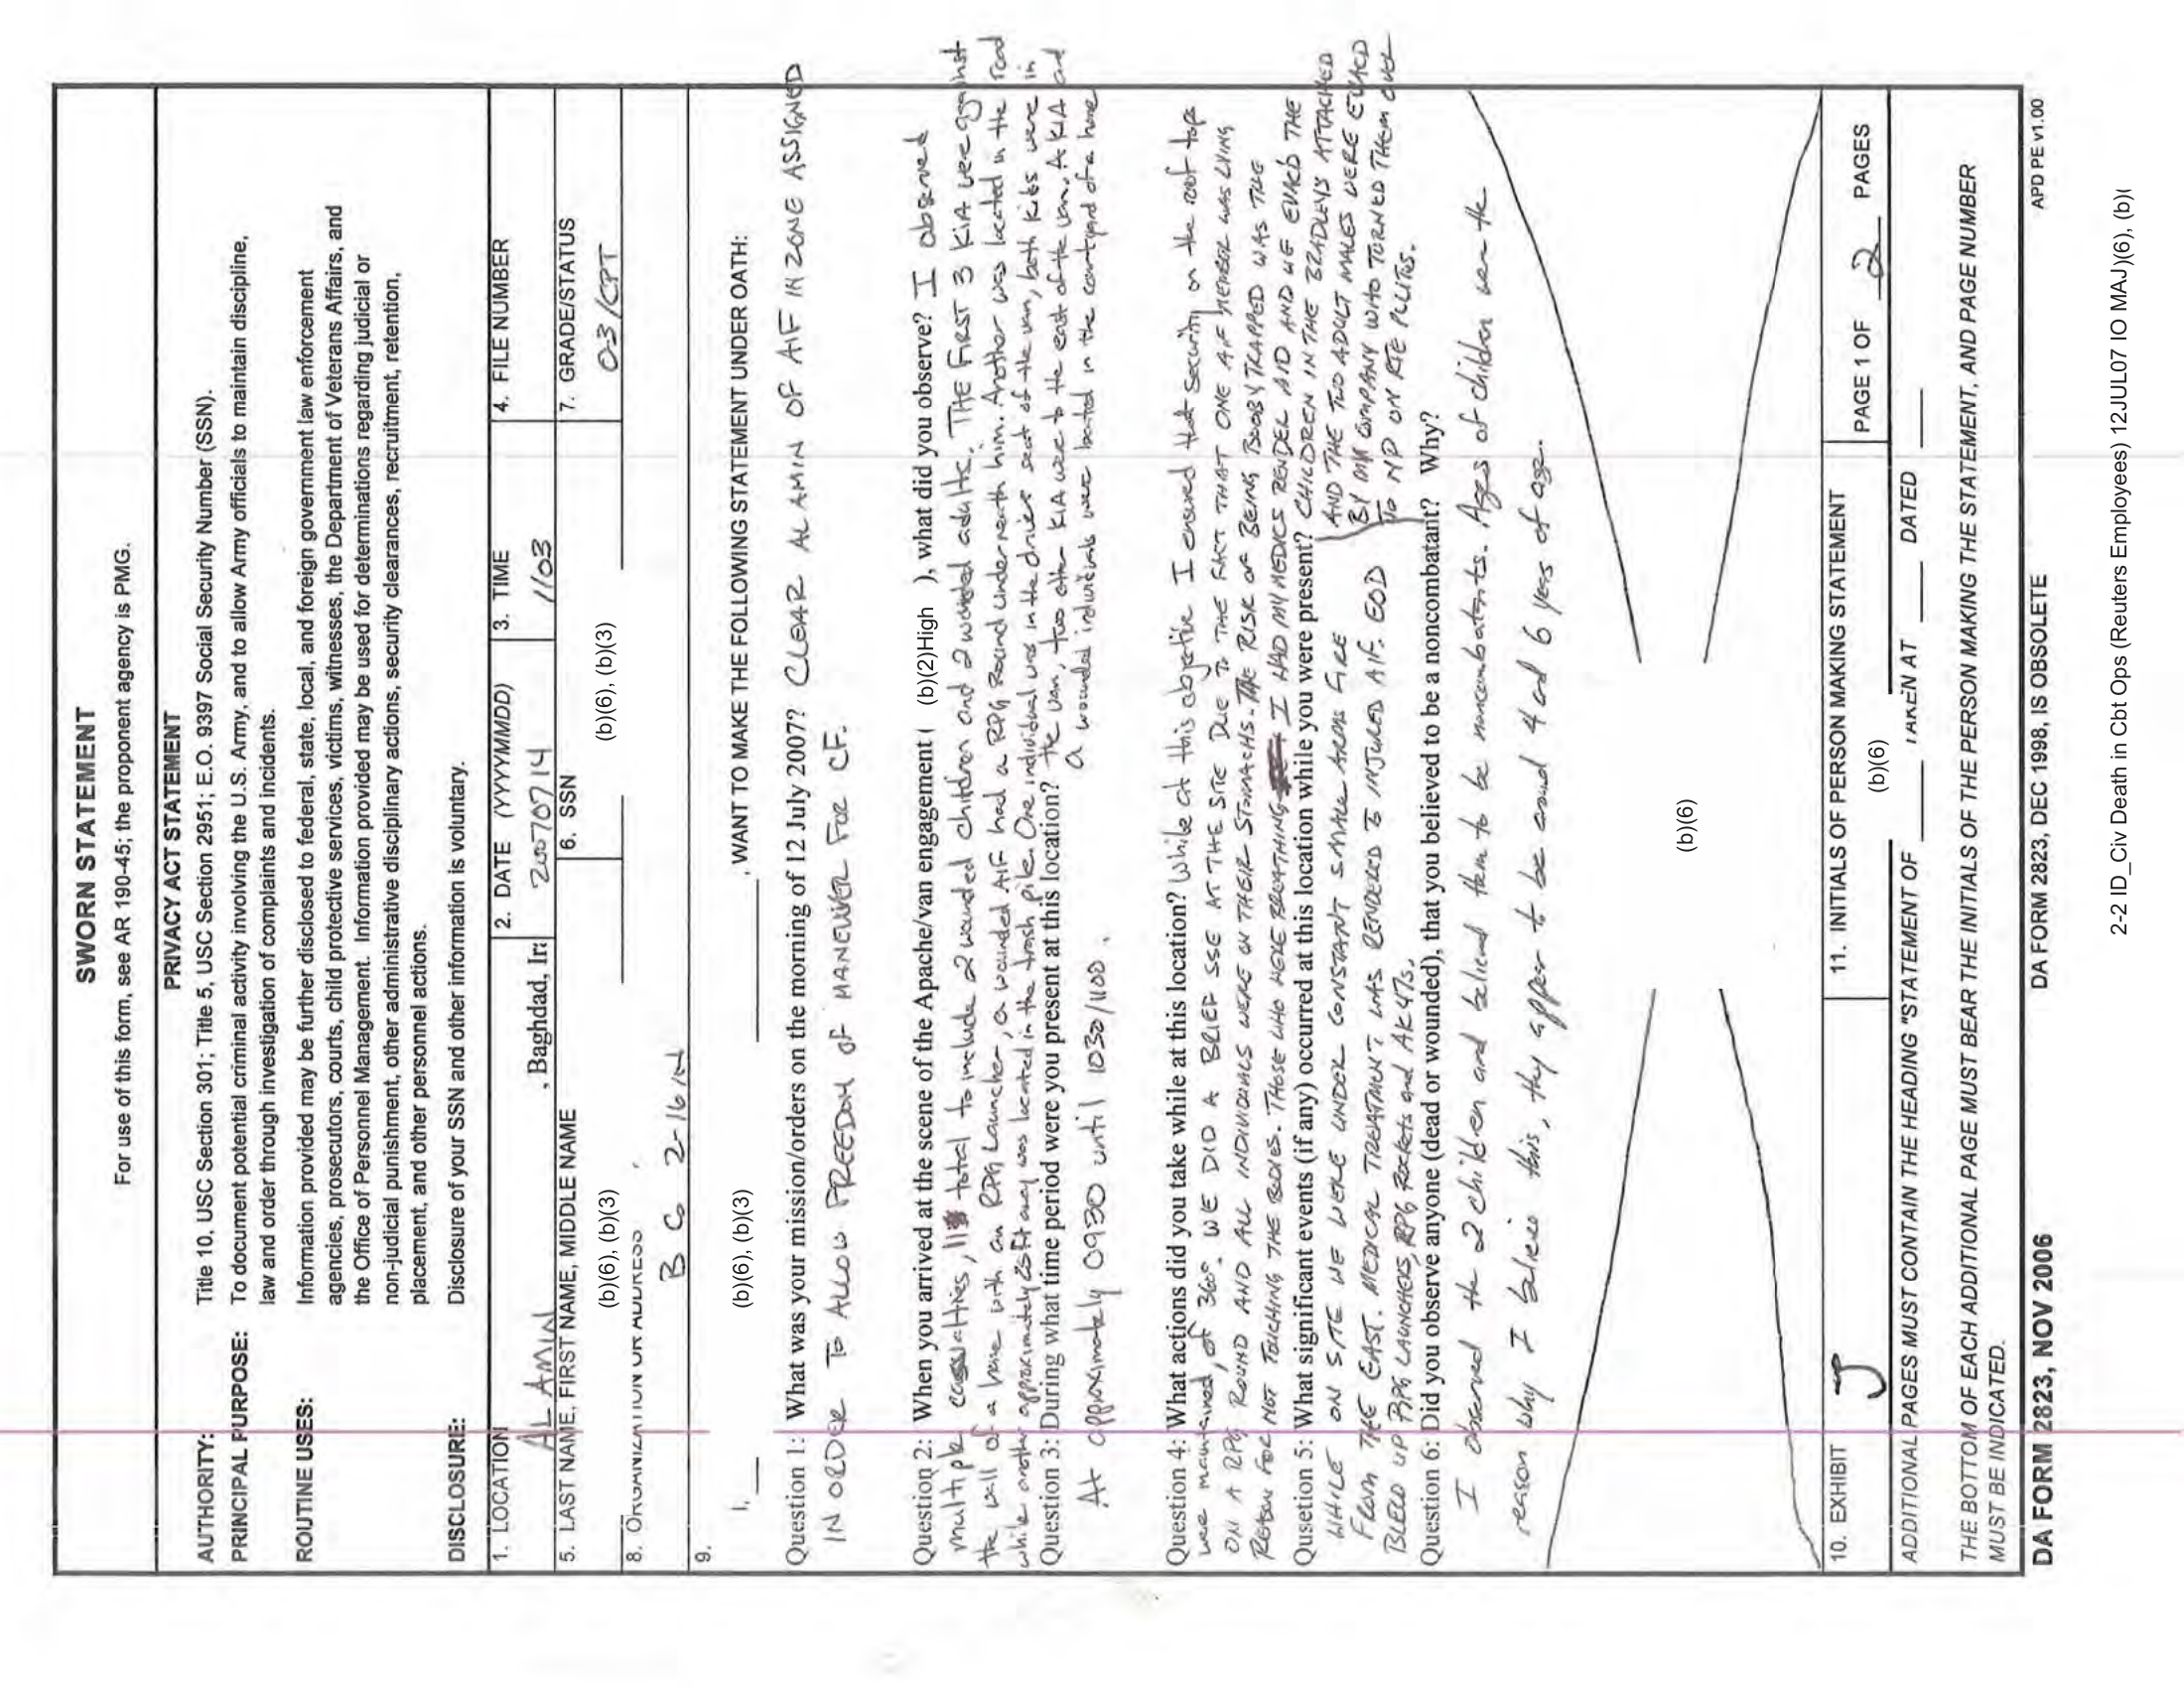 SWORN STATEMENT
For use of this form, see AR 190-45; the proponent agency is PMG.
PRIVACY ACT STATEMENT
AUTHORITY: Title 10, USC Section 301; Title 5, USC Section 2951; E.O. 9397 Social Security Number (SSN).
PRINCIPAL PURPOSE: To document potential criminal activity involving the U.S. Army, and to allow Army officials to maintain discipline,
law and order through investigation of complaints and incidents.
ROUTINE USES: Information provided may be further disclosed to federal, state, local, and foreign government law enforcement
agencies, prosecutors, courts, child protective services, victims, witnesses, the Department of Veterans Affairs, and
the Office of Personnel Management. Information provided may be used for determinations regarding judicial or
non-judicial punishment, other administrative disciplinary actions, security clearances, recruitment, retention,
placement, and other personnel actions.
DISCLOSURE: Disclosure of your SSN and other information is voluntary.
1. LOCATION 2. DATE (YYYYMMDD) 3. TIME 4. FILE NUMBER
AL AMIN , Baghdad, Ir 20070714 1103
5. LAST NAME, FIRST NAME, MIDDLE NAME 6. SSN 7. GRADE/STATUS
(b)(6), (b)(3) (b)(6), (b)(3) O-3/CPT
8. ORGANIZATION OR ADDRESS
B Co 2-16 IN
9.
I, (b)(6), (b)(3) , WANT TO MAKE THE FOLLOWING STATEMENT UNDER OATH:
Question 1: What was your mission/orders on the morning of 12 July 2007? CLEAR AL AMIN OF AIF IN ZONE ASSIGNED
IN ORDER TO ALLOW FREEDOM OF MANEUVER FOR CF.
Question 2: When you arrived at the scene of the Apache/van engagement ( (b)(2)High ), what did you observe? I observed
multiple casualties, 11 total to include 2 wounded children and 2 wounded adults. THE FIRST 3 KIA were against
the wall of a house with an RPG Launcher, a wounded AIF had a RPG Round underneath him. Another was located in the road
while another approximately 25 ft away was located in the trash pile. One individual was in the drivers seat of the van, both kids were in
Question 3: During what time period were you present at this location? the van, two other KIA were to the east of the van. A KIA and
a wounded individuals were located in the courtyard of a home
At approximately 0930 until 1030/1100.
Question 4: What actions did you take while at this location? While at this objective I ensured that security on the roof tops
were maintained, of 360°. WE DID A BRIEF SSE AT THE SITE DUE TO THE FACT THAT ONE AIF MEMBER WAS LYING
ON A RPG ROUND AND ALL INDIVIDUALS WERE ON THEIR STOMACHS. THE RISK OF BEING BOOBY TRAPPED WAS THE
REASON FOR NOT TOUCHING THE BODIES. THOSE WHO WERE BREATHING I HAD MY MEDICS RENDER AID AND WE EVAC'D THE
Qusetion 5: What significant events (if any) occurred at this location while you were present? CHILDREN IN THE BRADLEYS ATTACHED
WHILE ON SITE WE WERE UNDER CONSTANT SMALL ARMS FIRE AND THE TWO ADULT MALES WERE EVACD
FROM THE EAST. MEDICAL TREATMENT WAS RENDERED TO INJURED AIF. EOD BY MY COMPANY WHO TURNED THEM OVER
BLEW UP RPG LAUNCHERS, RPG Rockets and AK47s. TO NP ON RTE PLUTOS.
Question 6: Did you observe anyone (dead or wounded), that you believed to be a noncombatant? Why?
I observed the 2 children and believed them to be noncombatants. Ages of children were the
reason why I believe this, they apper to be around 4 and 6 years of age.
(b)(6)
10. EXHIBIT J 11. INITIALS OF PERSON MAKING STATEMENT PAGE 1 OF 2 PAGES
(b)(6)
ADDITIONAL PAGES MUST CONTAIN THE HEADING "STATEMENT OF TAKEN AT DATED
THE BOTTOM OF EACH ADDITIONAL PAGE MUST BEAR THE INITIALS OF THE PERSON MAKING THE STATEMENT, AND PAGE NUMBER
MUST BE INDICATED.
DA FORM 2823, NOV 2006 DA FORM 2823, DEC 1998, IS OBSOLETE APD PE v1.00
2-2 ID_Civ Death in Cbt Ops (Reuters Employees) 12JUL07 IO MAJ)(6), (b)(